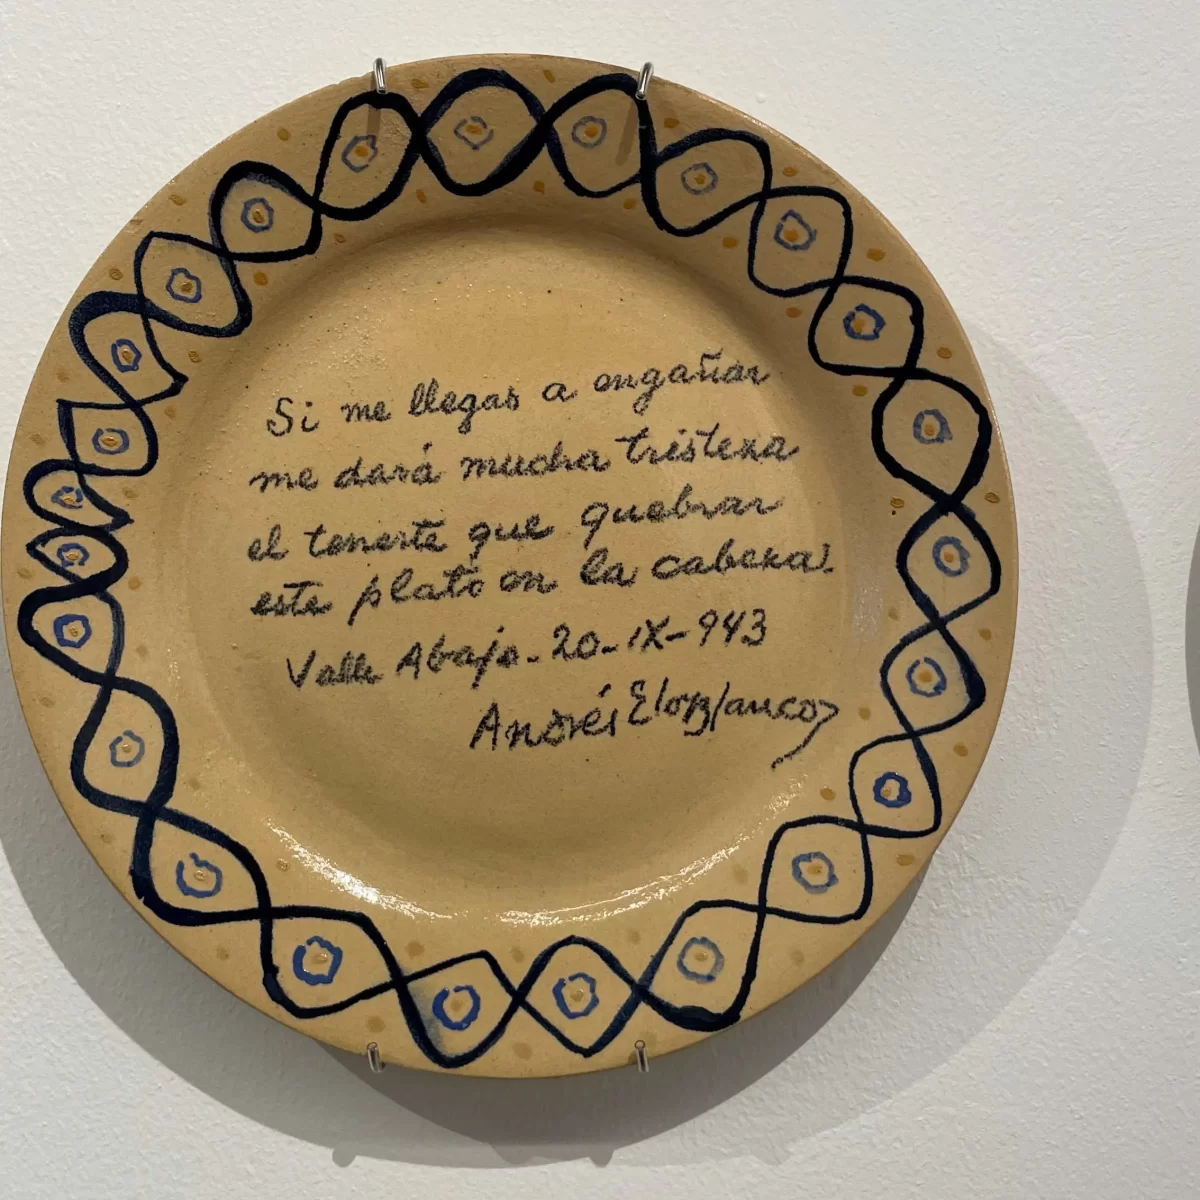 Si me llegas a engañar
me dará mucha tristeza
el tenerte que quebrar
este plato en la cabeza.
Valle Abajo. 20-IX-943
Andrés Eloy Blanco